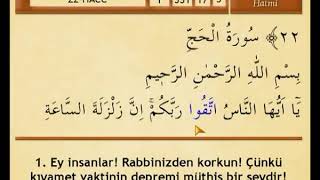 22 HACC
1
331
17
Hatmi
﴿٢٢﴾ سُورَةُ الْحَجِّ
بِسْمِ اللّٰهِ الرَّحْمٰنِ الرَّحِيمِ
يَٓا اَيُّهَا النَّاسُ اتَّقُوا رَبَّكُمْۚ اِنَّ زَلْزَلَةَ السَّاعَةِ
1. Ey insanlar! Rabbinizden korkun! Çünkü
kıyamet vaktinin depremi müthiş bir şeydir!